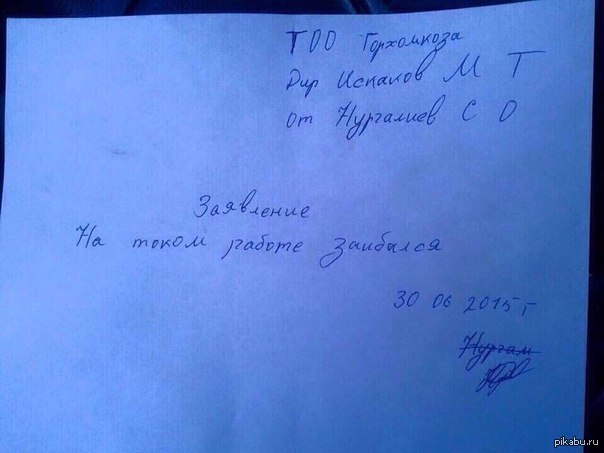 ТОО Горхомкоза
Дир Искаков М Т
от Нургалиев С О
Заявление
На таком работе заибался
30 06 2015 г
Нургам
pikabu.ru